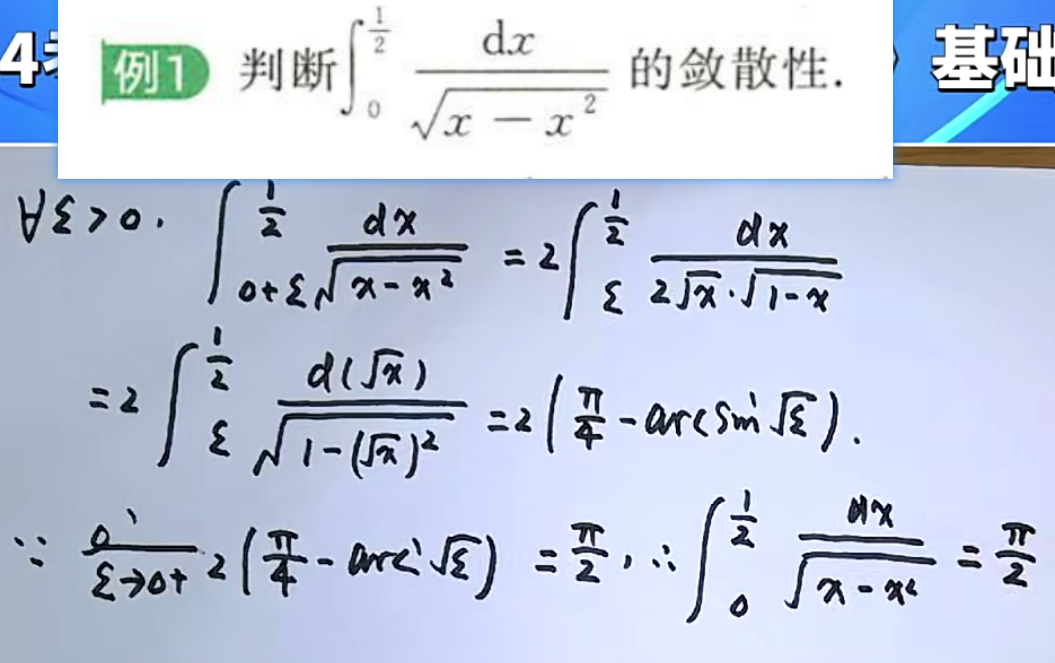 4
基础
例1 判断∫₀^(1/2) dx/√(x − x²) 的敛散性.
∀ε>0. ∫_(0+ε)^(1/2) dx/√(x−x²) = 2∫_ε^(1/2) dx/(2√x·√(1−x))
=2∫_ε^(1/2) d(√x)/√(1−(√x)²) =2(π/4 − arcsin√ε).
∵ ε→0+ 2(π/4 − arc √ε) = π/2, ∴ ∫₀^(1/2) dx/√(x−x²) = π/2